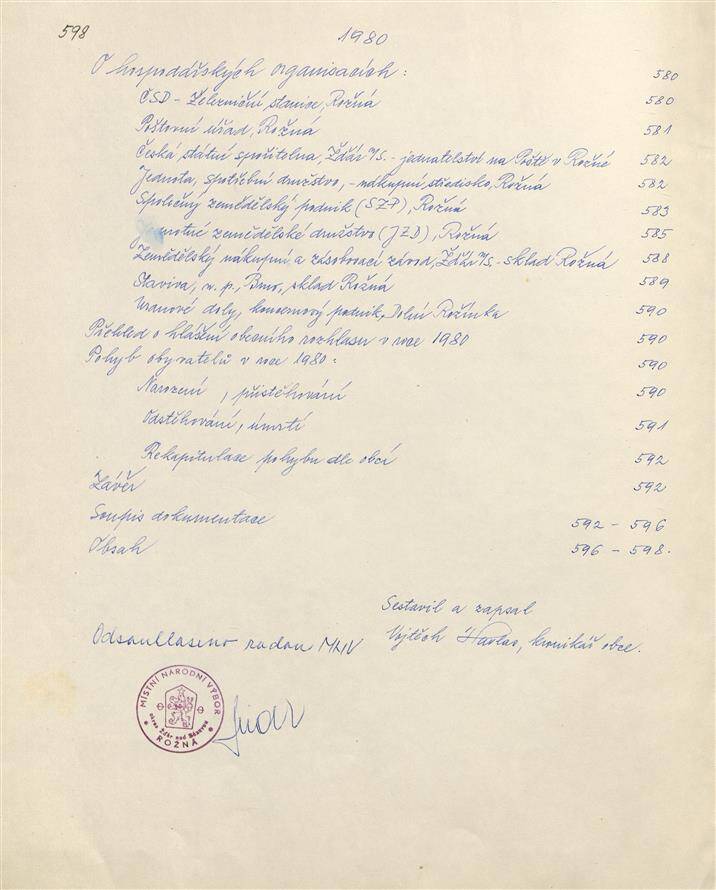 598
1980
O hospodářských organisacích: 580
ČSD - Železniční stanice, Rožná 580
Poštovní úřad, Rožná 581
Česká státní spořitelna, Žďár n/S. - jednatelství na Poště v Rožné 582
Jednota, spotřební družstvo, - nákupní středisko, Rožná 582
Společný zemědělský podnik (SZP), Rožná 583
Jednotné zemědělské družstvo (JZD), Rožná 585
Zemědělský nákupní a zásobovací závod, Žďár n/S. - sklad Rožná 588
Staviva, n. p., Brno, sklad Rožná 589
Uranové doly, koncernový podnik, Dolní Rožínka 590
Přehled o hlášení obecního rozhlasu v roce 1980 590
Pohyb obyvatelů v roce 1980: 590
Narození, přistěhování 590
Odstěhování, úmrtí 591
Rekapitulace pohybu dle obcí 592
Závěr 592
Soupis dokumentace 592 - 596
Obsah 596 - 598.
Sestavil a zapsal
Vojtěch kronikář obce.
Odsouhlaseno radou MNV
MÍSTNÍ NÁRODNÍ VÝBOR
okres Žďár nad Sázavou
ROŽNÁ